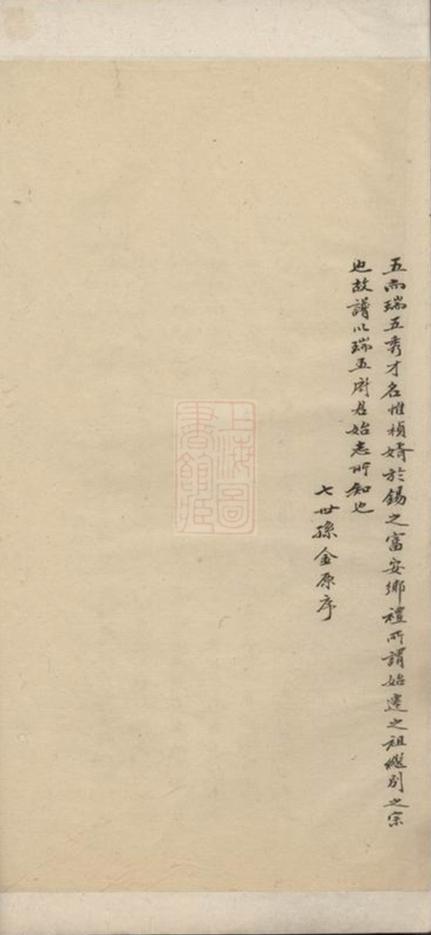 五而瑞五秀才名惟楨婿於錫之富安鄉禮所謂始遷之祖繼別之宗
也故譜以瑞五府君始志所知也
七世孫金原序
上海圖書館藏